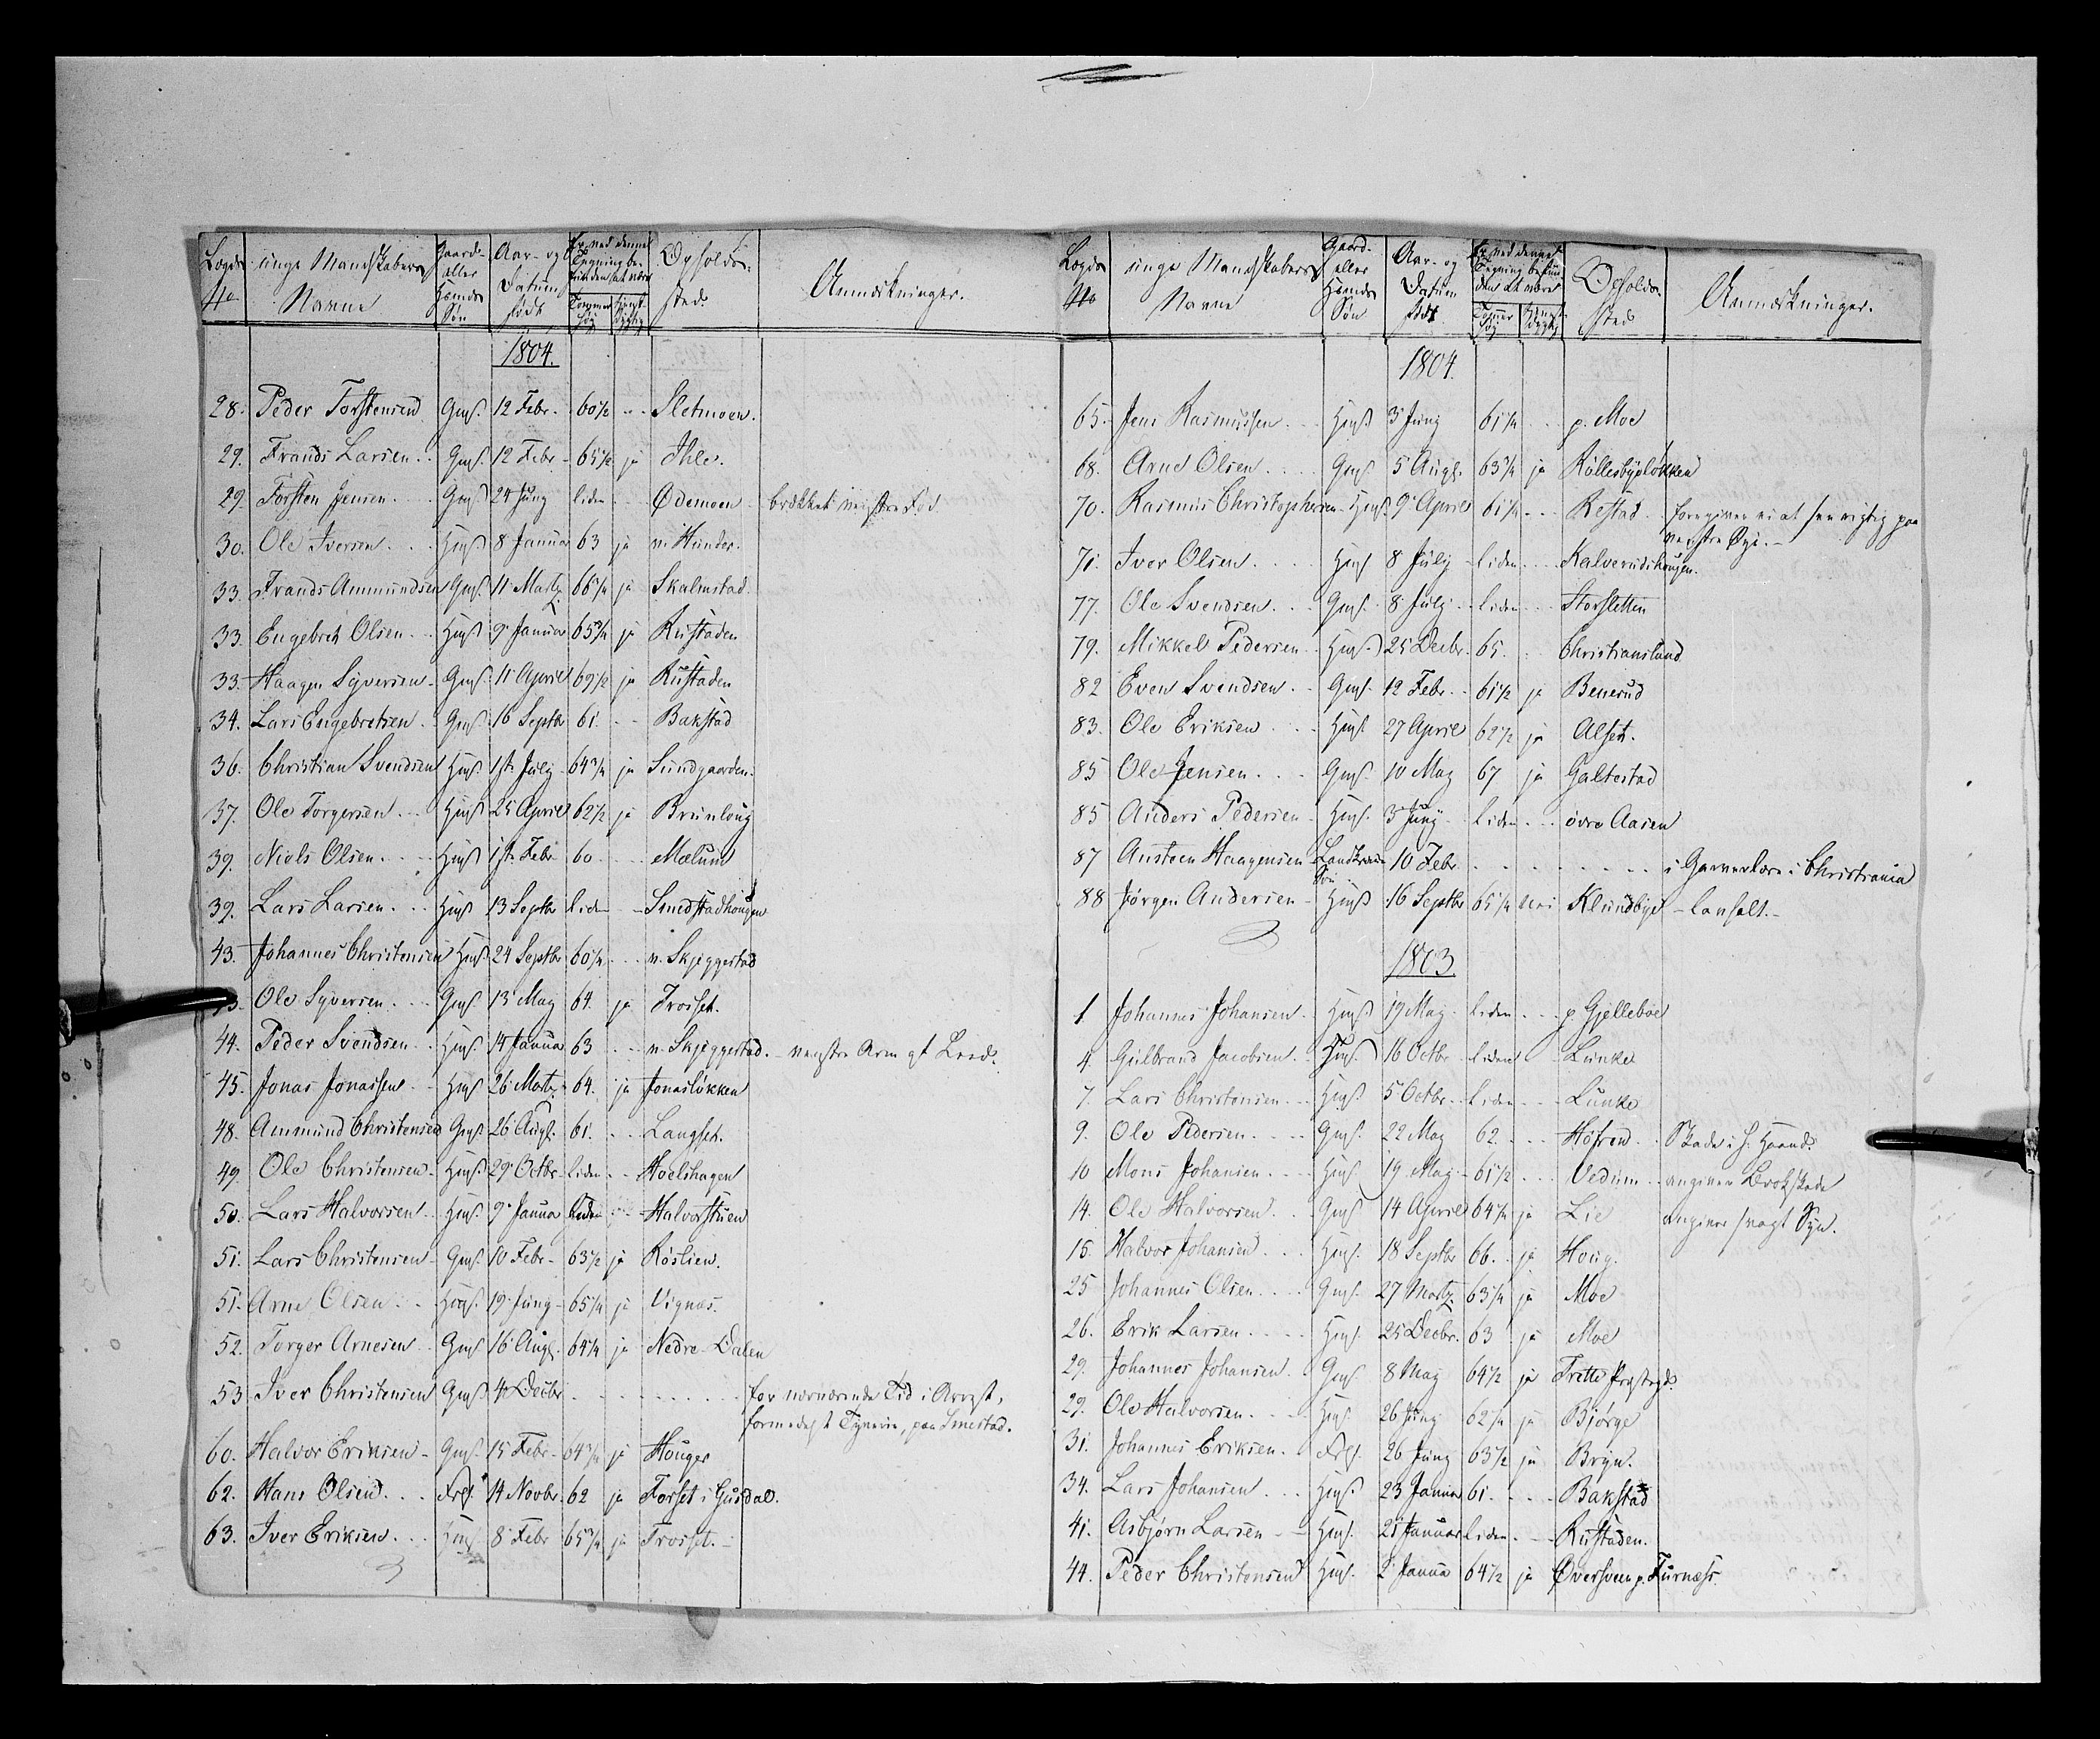 Lægds No unge Mandskabers Navne Gaard- eller Huusmds Søn Aar- og Datum født Er ved denne Tegning befunden at være Tommer høj Tjenstdygtig Opholds-sted. Anmærkninger.
1804.
28. Peder Torstensen Gmsß. 12 Febr. 60½ - - Sletmoen.
29. Frands Larsen. . Gmsß. 12 Febr. - 65½ ja Ihle.
29. Torsten Jensen. . Gmsß 24 Juny liden - Ødemoen - brækket venstre Fod
30. Ole Iversen. . . Hmsß 8 Janua 63 ja n. Hunder.
33. Frands Ammundsen Gmsß. 11 Martz. 66¼ ja Skalmstad.
33. Engebret Olsen. . Hmsß 9 Janua 65¾ ja Rustaden
33. Haagen Syversen - Gmsß. 11 April 69½ ja Rustaden
34. Lars Engebretsen. Gmsß. 16 Septbr 61. - - Bakstad
36. Christian Svendsen Hmsß. 1ste July 64¾ ja Sundgaarden.
37. Ole Torgersen. . . Hmsß 25 April 62½ ja Brunloug
39. Niels Olsen. . . . Hmsß 1ste Febr 60 - - - Mælum
39. Lars Larsen. . . Hmsß 13 Septbr liden - Smedstadhougen
43. Johannes Christensen Hmsß 24 Septbr 60¼ . . . n. Skjeggestad
43. Ole Syversen. . . Gmsß. 13 May 64. ja Troset.
44. Peder Svendsen. . Hmsß. 14 Janua 63 . . . n. Skjeggestad. - venstre Arm af Leed.
45. Jonas Jonassen. . Hmsß 26 Martz. 64. ja Jonasløkken
48. Ammund Christensen Gmsß 26 Augs. 61. . . . Langset.
49. Ole Christensen - Hmsß. 29 Octbr. liden - - Hoelshagen
50. Lars Halvorsen. . Hmsß. 9 Janua liden - - Halvorstuen
51. Lars Christensen - Gmsß. 10 Febr - 63½ ja Røslien.
51. Arne Olsen. . . Hmsß. 19 Juny - 65¼ ja Vignæs.
52. Torger Arnesen. . Gmsß 16 Augs. 64¼ ja Nedre-Dalen
53 Iver Christensen Gmsß 4 Decbr - - - - - - - for nærværende Tid i Arrest,
formedelst Tyverie, paa Smestad.
60. Halvor Eriksen - Gmsß. 15 Febr - 64¾ ja Houger
62. Hans Olsen. . . Frlsß. 14 Novbr. 62 ja Forset i Gusdal.
63. Iver Eriksen. . . Hmsß 8 Febr 65¾ ja Troset. -
Lægds No unge Mandskabers Navne Gaard- eller Huusmds Søn Aar- og Datum født Er ved denne Tegning befunden at være Tommer høj Tjenstdygtig Opholds-sted Anmærkninger.
1804.
65. Jens Rasmussen. . Hmsß 3 Juny 61¼ . . . p. Moe
68. Arne Olsen. . . . Gmsß 5 Augs. 63¾ ja Rollesbyeløkken
70. Rasmus Christophersen - Hmsß. 9 April 61¼ - - - Restad - - foregiver ei at see rigtig paa
venstre Øye. -
71. Iver Olsen. . . . Hmsß 8 July - liden - - Kalverudshougen.
77. Ole Svendsen. . . Gmsß. 8 July - liden - - Storsletten
79. Mikkel Pedersen. Hmsß. 25 Decbr. 65. . . Christianslund
82 Even Svendsen. . Gmsß. 12 Febr. . 61½ ja Benerud
83. Ole Eriksen. . . Hmsß. 27 April 62½ ja Alset.
85 Ole Jensen. . . . Gmsß. 10 May 67 ja Galtestad
85 Anders Pedersen. Hmsß. 3 Juny liden. . . . øvre Aasen
87 Austeen Haagensen - Søn 10 Febr - - - - - - - i Garverlære i Christiania
88 Jørgen Andersen - Hmsß 16 Septbr 65¼ nei Klundbye - lanhalt. -
1803.
1 Johannes Johansen. Hmsß 19 May - liden. . . p. Gjelleboe
4. Gulbrand Jacobsen. Hmsß. 16 Octbr - liden - - Lunke
7. Lars Christensen. . . Hmsß 5 Octbr. . liden - - Lunke
9. Ole Pedersen. . . . Gmsß. 22 May 62. . . . Høfren. . Skade i h. Haand.
10 Mons Johansen. . . Hmsß 19 May - 61½ . . . Vedum. . angiver Brokskade
14. Ole Halvorsen. . . Gmsß 14 April 64¼ ja Lie angiver svagt Syn.
15. Halvor Johansen. . . Hmsß. 18 Septbr 66. . ja Houg.
25 Johannes Olsen. . . Gmsß. 27 Martz. 63¼ ja Moe
26. Erik Larsen. . . . Hmsß. 25 Decbr. 63 ja Moe
29. Johannes Johansen. Gmsß. 8 May 64½ ja Trette Præstegd.
29. Ole Halvorsen. . . . Hmsß. 26 Juny 62¼ ja Bjørge
31. Johannes Eriksen. . Frlsß. 26 Juny 63½ ja Bryn.
34. Lars Johansen. . . Hmsß. 23 Janua 61. - - - Bakstad
41. Asbjørn Larsen - - Hmsß. 21 Januar liden. - - Rustaden.
44. Peder Christensen Hmsß. 2 Janua 64½ ja Øversveen p. Furnæss.